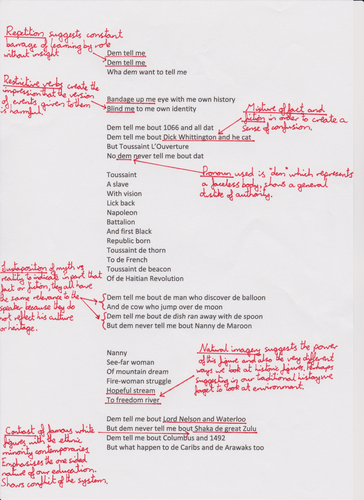 Repetition suggests constant
barrage of learning by rote
without insight
Dem tell me
Dem tell me
Wha dem want to tell me
Restrictive verbs create the
impression that the version
of events, given to them
is harmful.
Bandage up me eye with me own history
Blind me to me own identity
Mixture of fact and
fiction in order to create a
sense of confusion.
Dem tell me bout 1066 and all dat
Dem tell me bout Dick Whittington and he cat
But Toussaint L'Ouverture
No dem never tell me bout dat
Pronoun used is "dem" which represents
a faceless body, shows a general
dislike of authority.
Toussaint
A slave
With vision
Lick back
Napoleon
Battalion
And first Black
Republic born
Toussaint de thorn
To de French
Toussaint de beacon
Of de Haitian Revolution
Juxtaposition of myth vs
reality to indicate in part that
fact or fiction, they all have
the same relevance to the
speaker because they do
not reflect his culture
or heritage.
Dem tell me bout de man who discover de balloon
And de cow who jump over de moon
Dem tell me bout de dish ran away with de spoon
But dem never tell me bout Nanny de Maroon
Nanny
See-far woman
Of mountain dream
Fire-woman struggle
Hopeful stream
To freedom river
Natural imagery suggests the power
of this figure and also the very different
ways we look at historic figures. Perhaps
suggesting in our traditional history we
forget to look at environment.
Contrast of famous white
figures with the ethnic
minority contemporaries
Emphasises the one sided
nature of our education.
Shows conflict of the system.
Dem tell me bout Lord Nelson and Waterloo
But dem never tell me bout Shaka de great Zulu
Dem tell me bout Columbus and 1492
But what happen to de Caribs and de Arawaks too